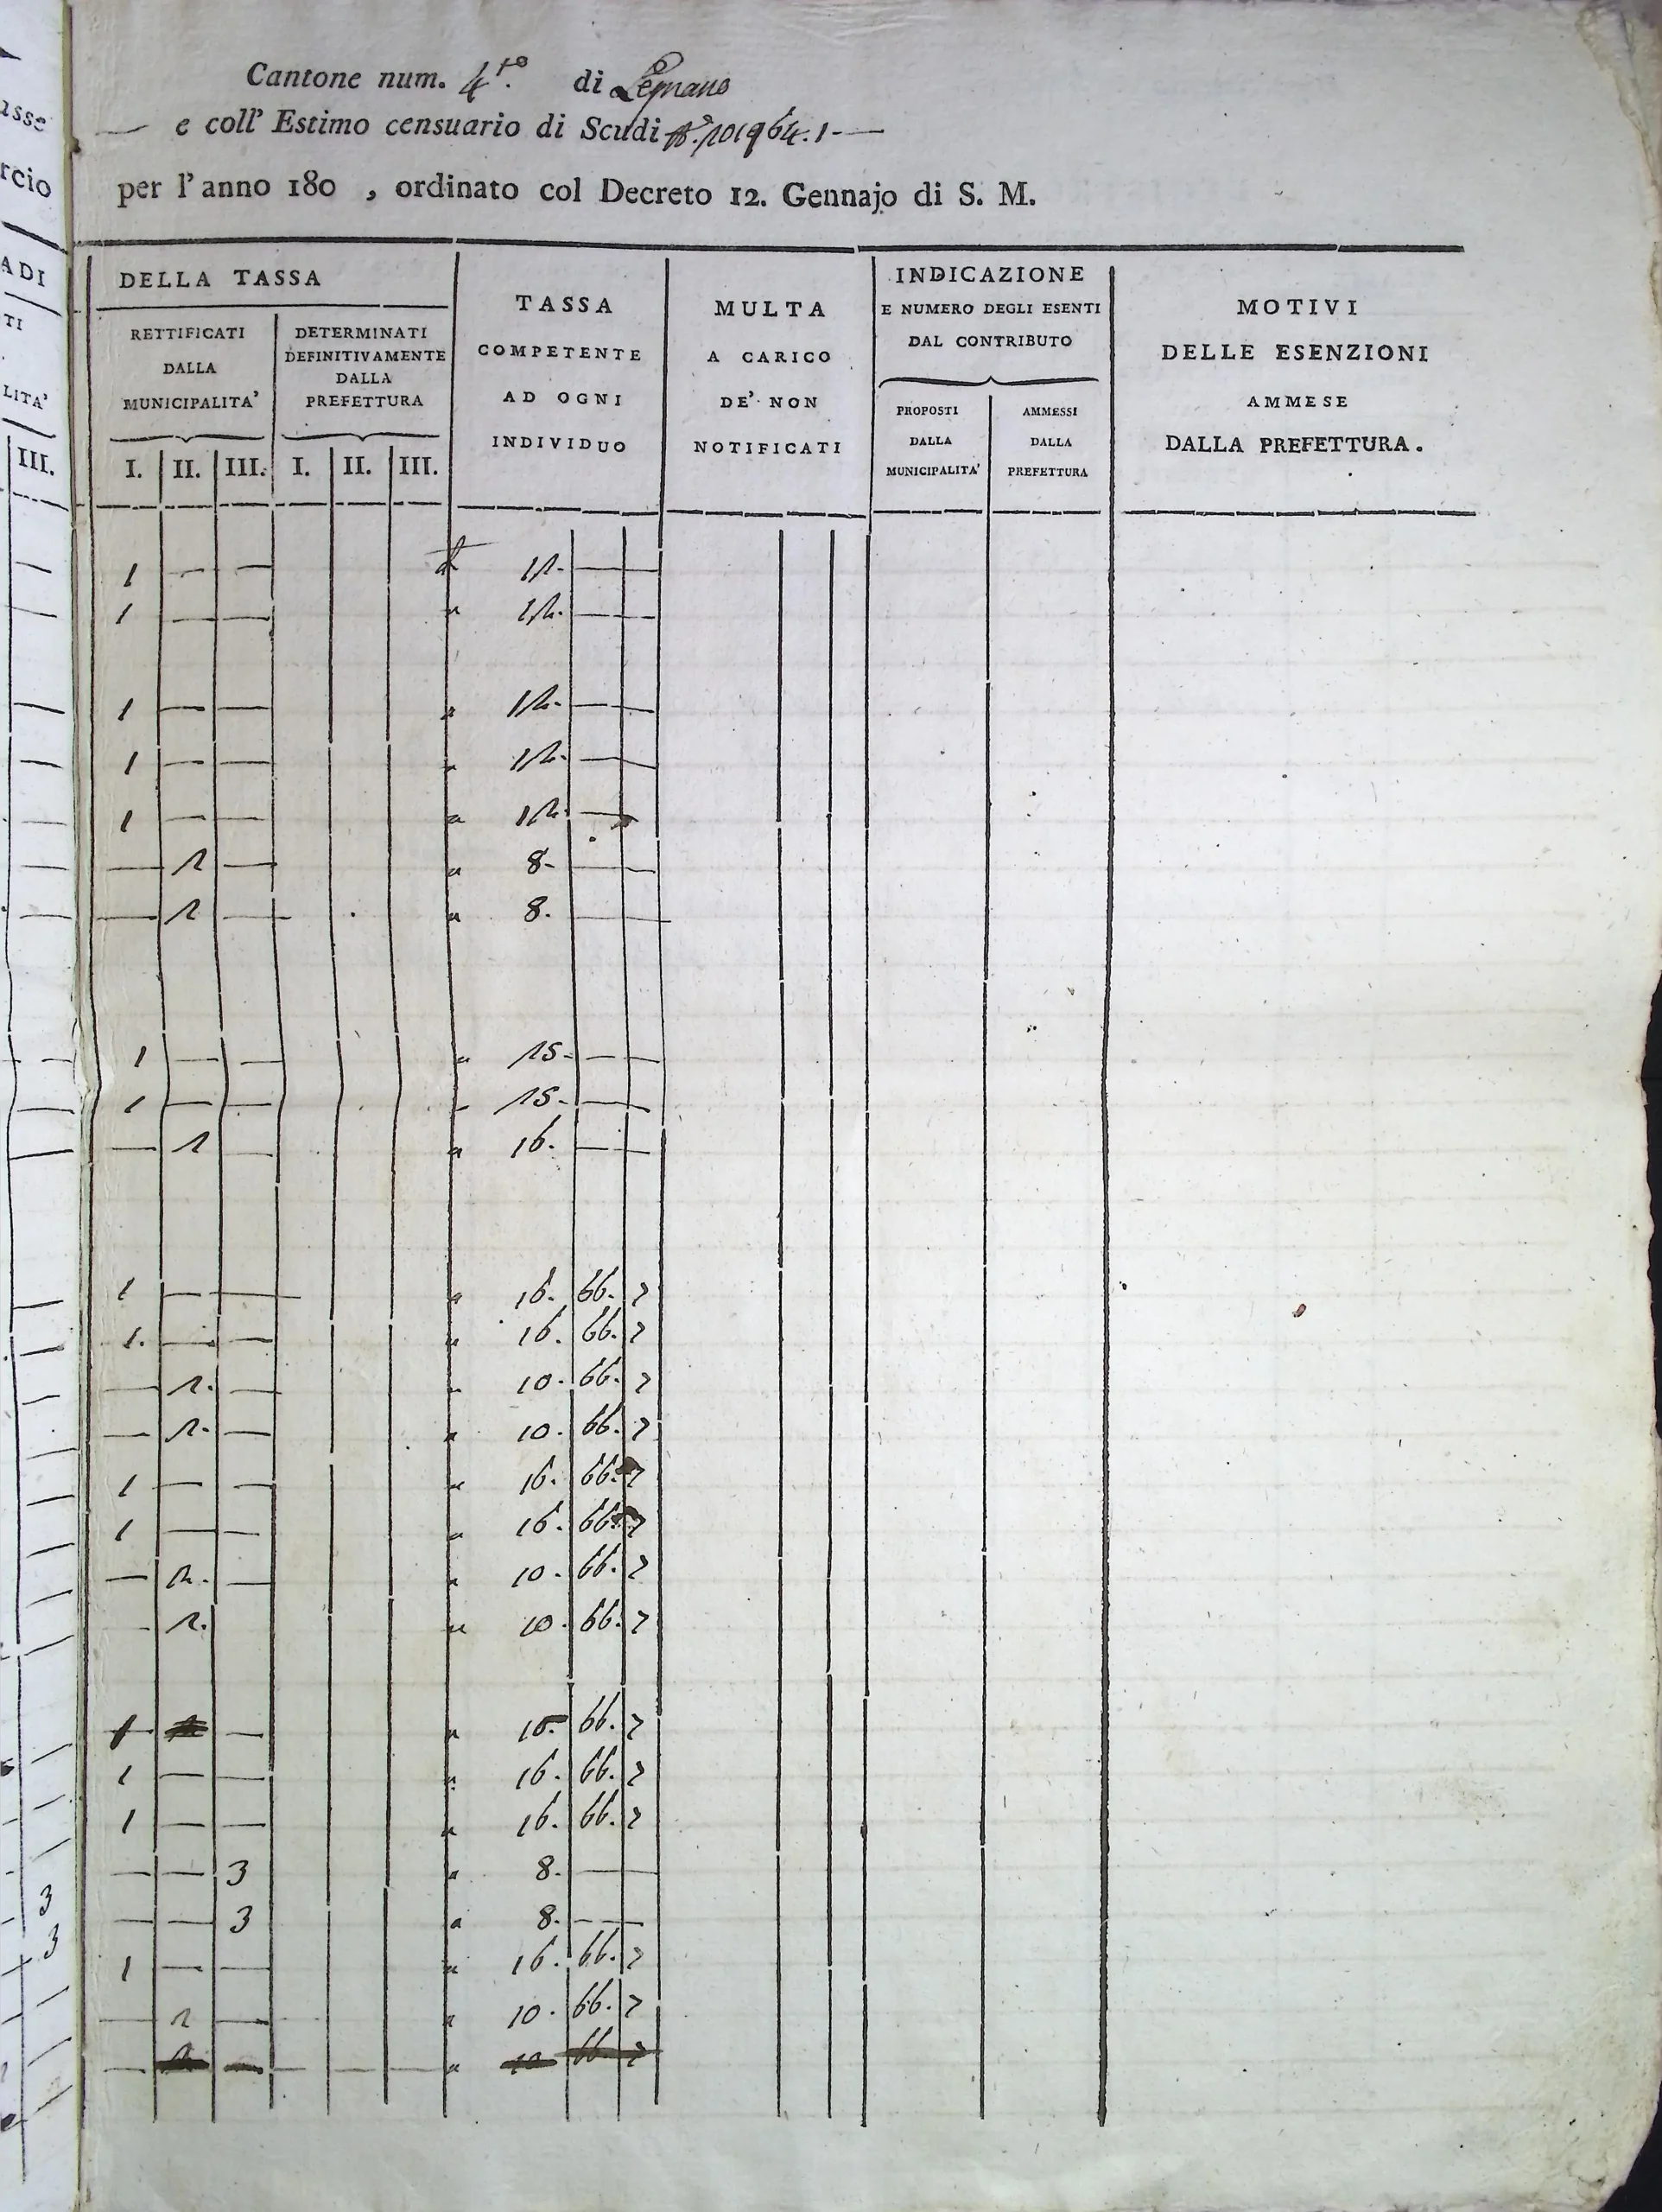 Cantone num. 4.to di Legnano
e coll' Estimo censuario di Scudi N.° 101964.1
per l'anno 180 , ordinato col Decreto 12. Gennajo di S. M.
DELLA TASSA
RETTIFICATI
DALLA
MUNICIPALITA'
DETERMINATI
DEFINITIVAMENTE
DALLA
PREFETTURA
I. II. III. I. II. III.
TASSA
COMPETENTE
AD OGNI
INDIVIDUO
MULTA
A CARICO
DE' NON
NOTIFICATI
INDICAZIONE
E NUMERO DEGLI ESENTI
DAL CONTRIBUTO
PROPOSTI
DALLA
MUNICIPALITA'
AMMESSI
DALLA
PREFETTURA
MOTIVI
DELLE ESENZIONI
AMMESE
DALLA PREFETTURA.
1 — — 12. — —
1 — — " 12. — —
1 — — " 12. — —
1 — — " 12. — —
1 — — " 12. — —
— 2 — " 8. — —
— 2 — " 8. — —
1 — — " 25. — —
1 — — " 25. — —
— 2 — " 16. — —
1 — — " 16. 66. 7
1. — — " 16. 66. 7
— 2. — " 10. 66. 7
— 2. — " 10. 66. 7
1 — — " 16. 66. 7
1 — — " 16. 66. 7
— 2. — " 10. 66. 7
— 2. " 10. 66. 7
1 — " 16. 66. 7
1 — — " 16. 66. 7
1 — — " 16. 66. 7
— — 3 " 8. — —
— — 3 " 8. — —
1 — — " 16. 66. 7
— 2 — " 10. 66. 7
— 2 — " 10 66. 7
ADI
TI
LITA'
III.
rcio
3
3